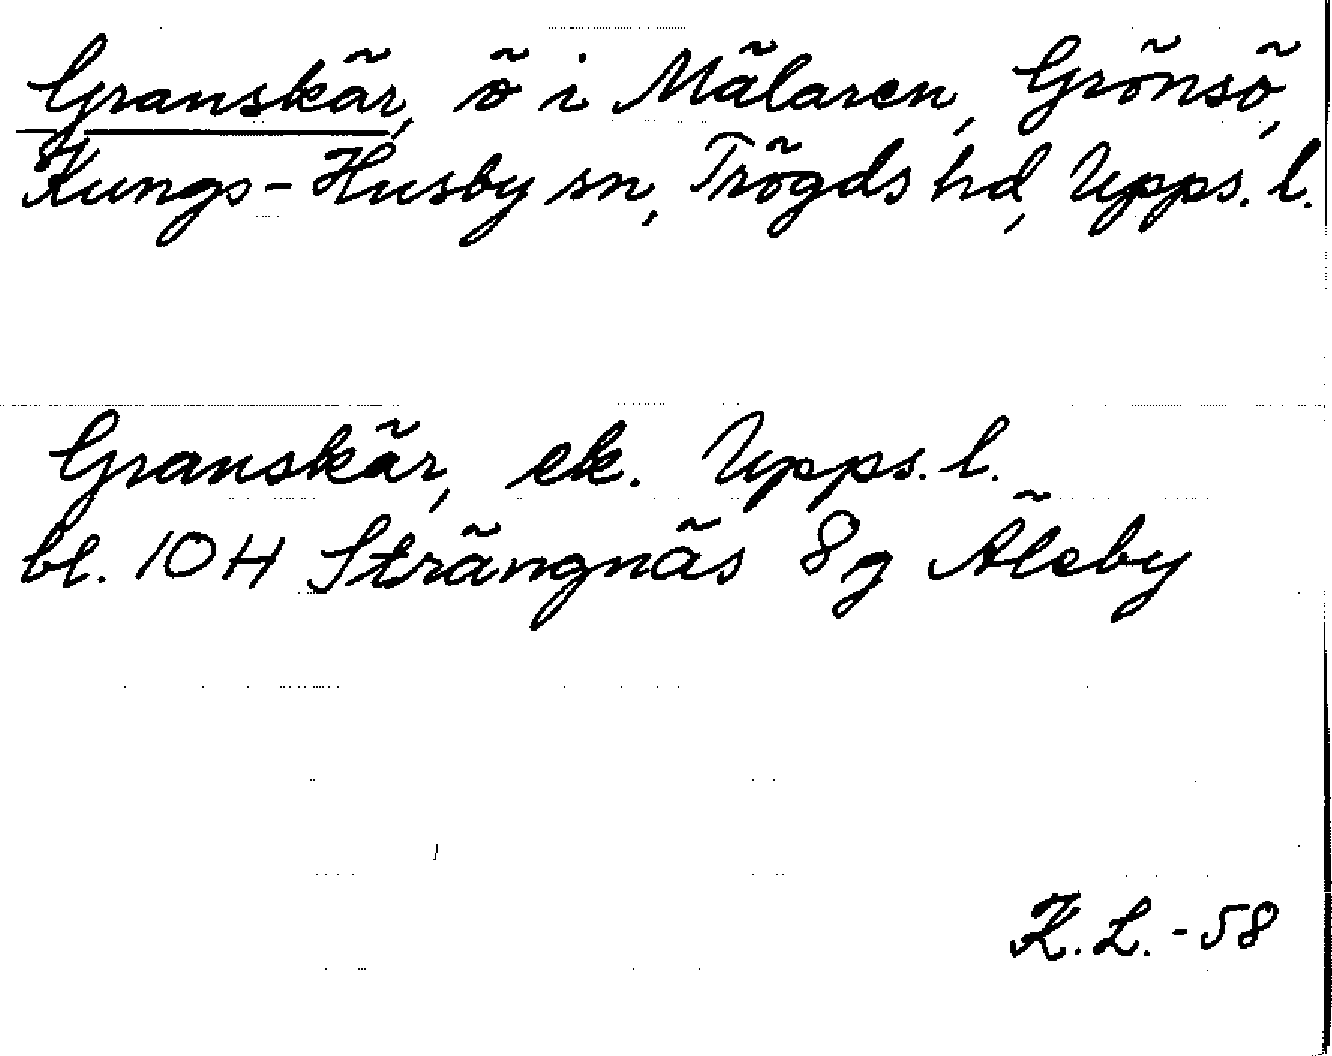 Granskär, ö i Mälaren, Grönsö,
Kungs-Husby sn, Trögds hd, Upps. l.
Granskär, ek. Upps. l.
bl. 10H Strängnäs 8g Älsby
K.L.-58